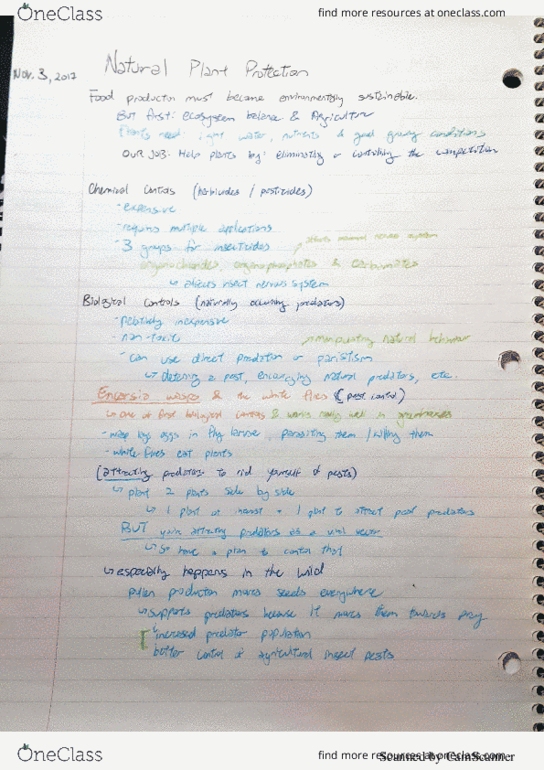 OneClass
find more resources at oneclass.com
Nov. 3, 2017
Natural Plant Protection
Food production must become environmentally sustainable.
But first: Ecosystem balance & Agriculture
Plants need: light water, nutrients & good growing conditions
OUR JOB: Help plants by: eliminating or controlling the competition
Chemical Controls (herbicides / pesticides)
- expensive
- requires multiple applications
- 3 groups for insecticides
nervous system
organochlorides, organophosphates & carbamates
↳ affects insect nervous system
Biological Controls (naturally occurring predators)
- relatively inexpensive
- non-toxic
manipulating natural behaviour
- can use direct predation or parasitism
↳ deterring a pest, encouraging natural predators, etc.
Encarsia wasps & the white flies (pest control)
↳ one of first biological controls & works really well in greenhouses
- wasp lays eggs in fly larvae, parasiting them / killing them
- white flies eat plants
(attracting predators to rid yourself of pests)
↳ plant 2 plants side by side
↳ 1 plant of interest + 1 plant to attract pest predators
BUT your attracting predators as a viral vector
↳ so have a plan to control that
↳ especially happens in the wild
pollen production moves seeds everywhere
↳ supports predators because it moves them towards prey
increased predator population
better control of agricultural insect pests
OneClass
find more resources at oneclass.com
Scanned by CamScanner